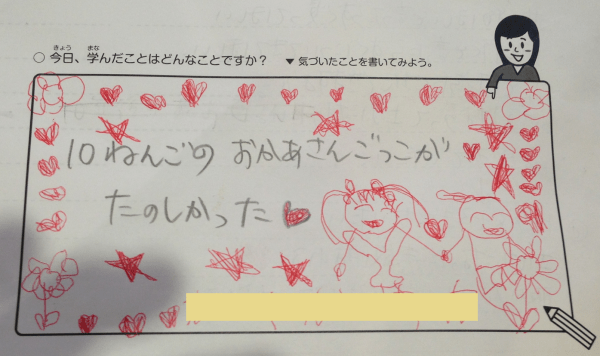 ○ 今日、学んだことはどんなことですか？ ▼ 気づいたことを書いてみよう。
10ねんごの おかあさんごっこが
たのしかった